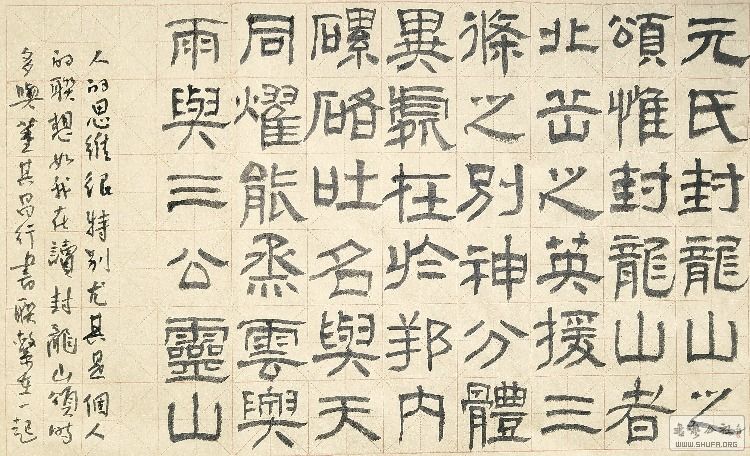 元氏封龍山之
頌惟封龍山者
北岳之英援三
條之别神分體
異處在於邦内
磥硌吐名與天
同燿能烝雲興
雨與三公靈山
人的思維很特别尤其是個人
的聯想如我在讀封龍山頌時
多與董其昌行書聯繫在一起
WWW.SHUFA.ORG